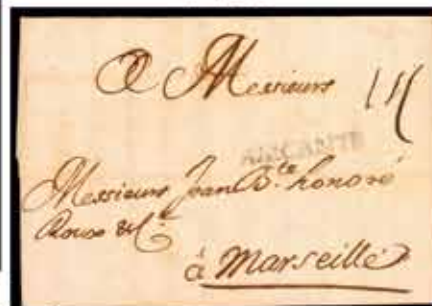 A Messieurs
ALICANTE
Messieurs Jean B.te honoré
Roux & C.e
à Marseille